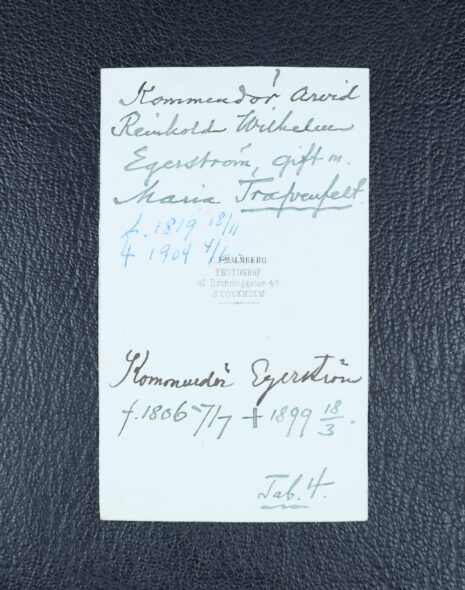 Kommendör Arvid
Reinhold Wilhelm
Egerström, gift m.
Maria Trafvenfelt.
f. 1819 18/11
† 1904 4/6
MALMBERG
PHOTOGRAF
42 Drottninggatan 42.
STOCKHOLM.
Kommendör Egerström
f. 1806 7/7 † 1899 18/3.
Tab. 4.